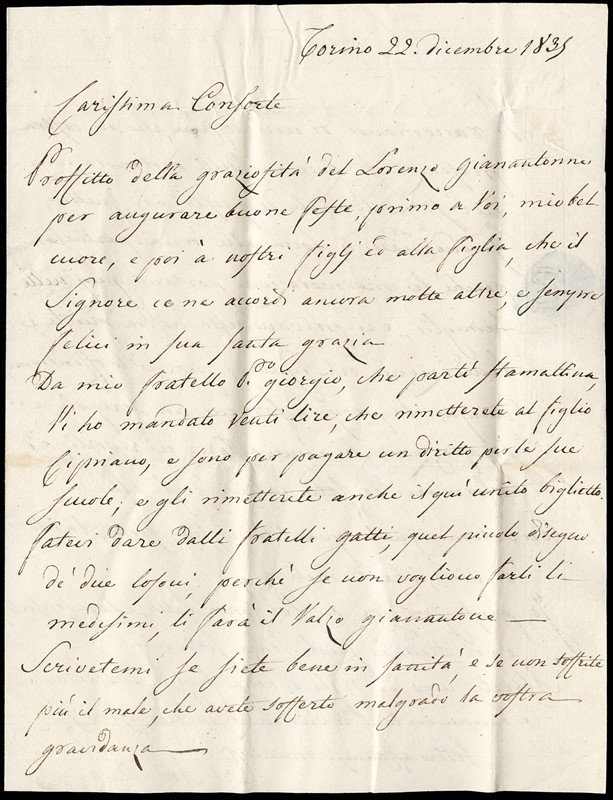 Torino 22. dicembre 1835
Carissima Consorte
Proffitto della graziosità del Lorenzo gianantonne
per augurare buone feste, primo a Voi, mio bel
cuore, e poi à nostri figlj ed alla figlia, che il
Signore ce ne accordi ancora molte altre, e sempre
felici in sua santa grazia
Da mio fratello giorgio, che partì stamattina,
Vi ho mandato venti lire, che rimetterete al figlio
Cipriano, e sono per pagare un diritto per le sue
scuole; e gli rimetterete anche il quì unito biglietto.
fatevi dare dalli fratelli gatti, quel piccolo disegno
de' due perchè se non vogliono farli li
medesimi, li farà il gianantone —
Scrivetemi se siete bene in sanità, e se non soffrite
più il male, che avete sofferto malgrado la vostra
gravidanza —